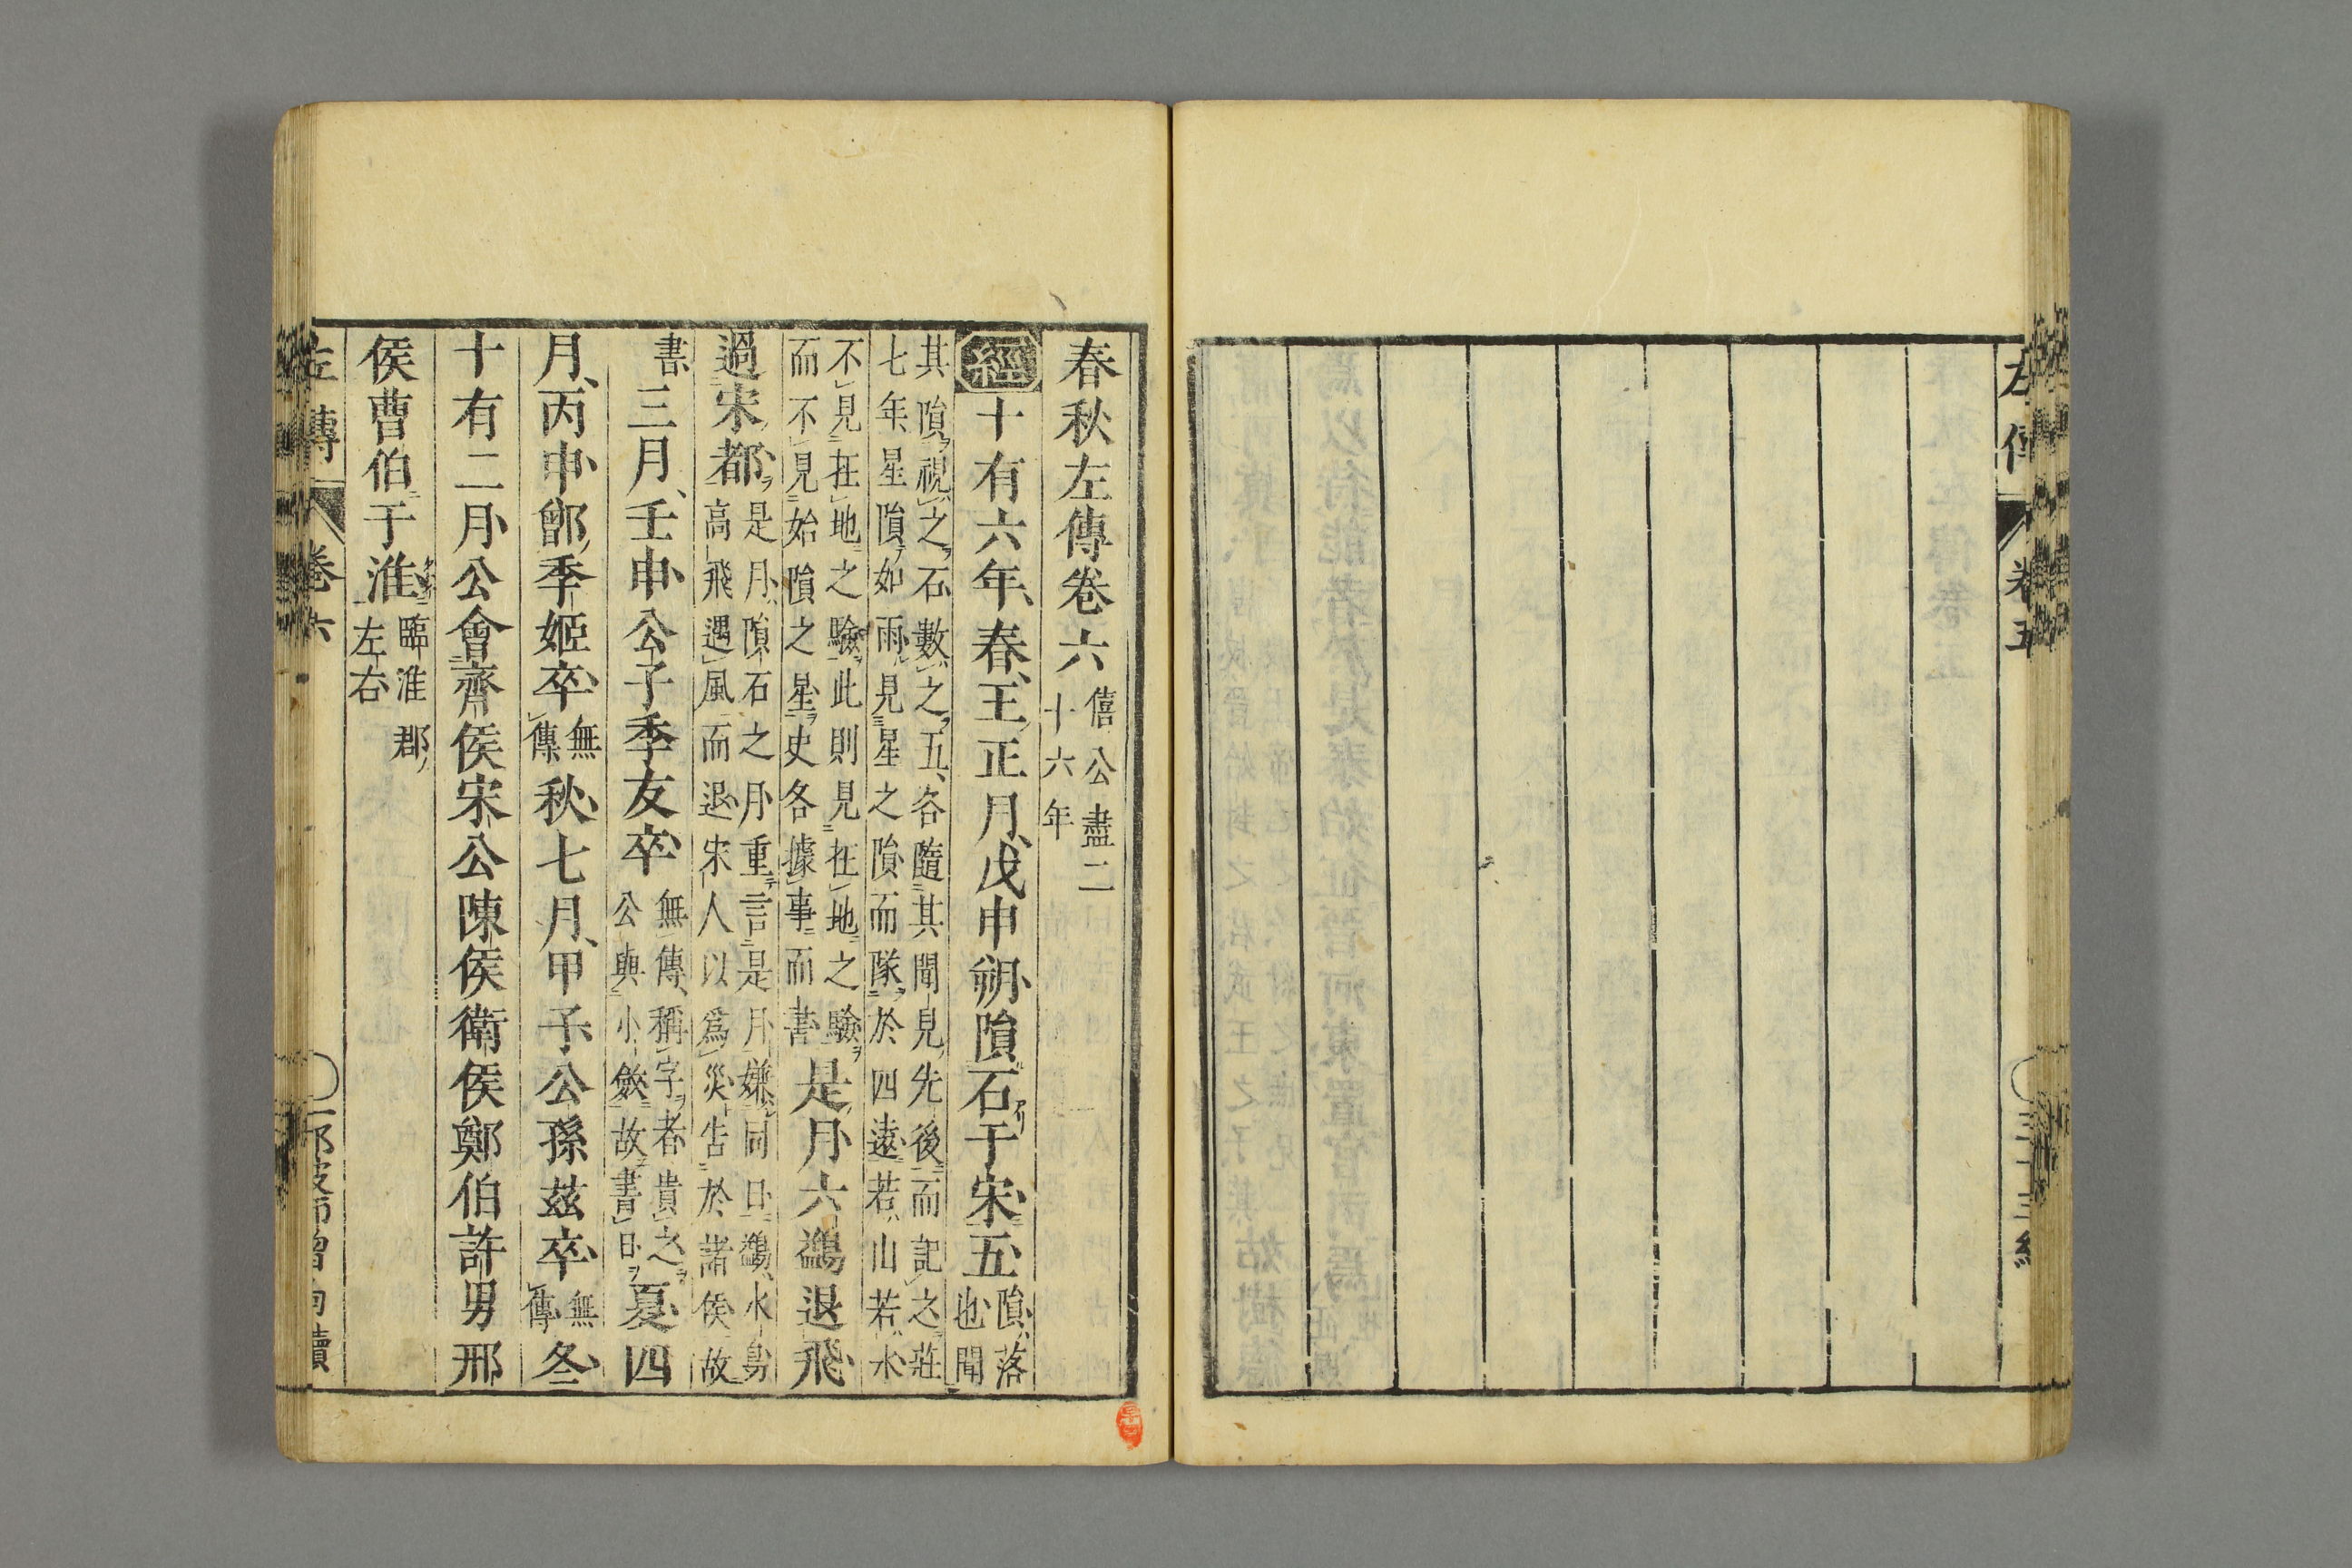 左傳
卷五
三十三終
春秋左傳卷六 僖公盡二十六年
經十有六年春王正月戊申朔隕石于宋五 隕落也聞
其隕視之石數之五各隨其聞見先後而記之莊七年星隕如雨見星之隕而隊於四遠若山若水
不見在地之驗此則見在地之驗而不見始隕之星史各據事而書 是月六鷁退飛
過宋都 是月隕石之月重言是月嫌同日鷁水鳥高飛遇風而退宋人以爲災告於諸侯故
書 三月壬申公子季友卒 無傳稱字者貴之公與小斂故書日 夏四
月丙申鄫季姬卒 無傳 秋七月甲子公孫茲卒 無傳 冬
十有二月公會齊侯宋公陳侯衛侯鄭伯許男邢
侯曹伯于淮 臨淮郡左右
左傳
卷六
一